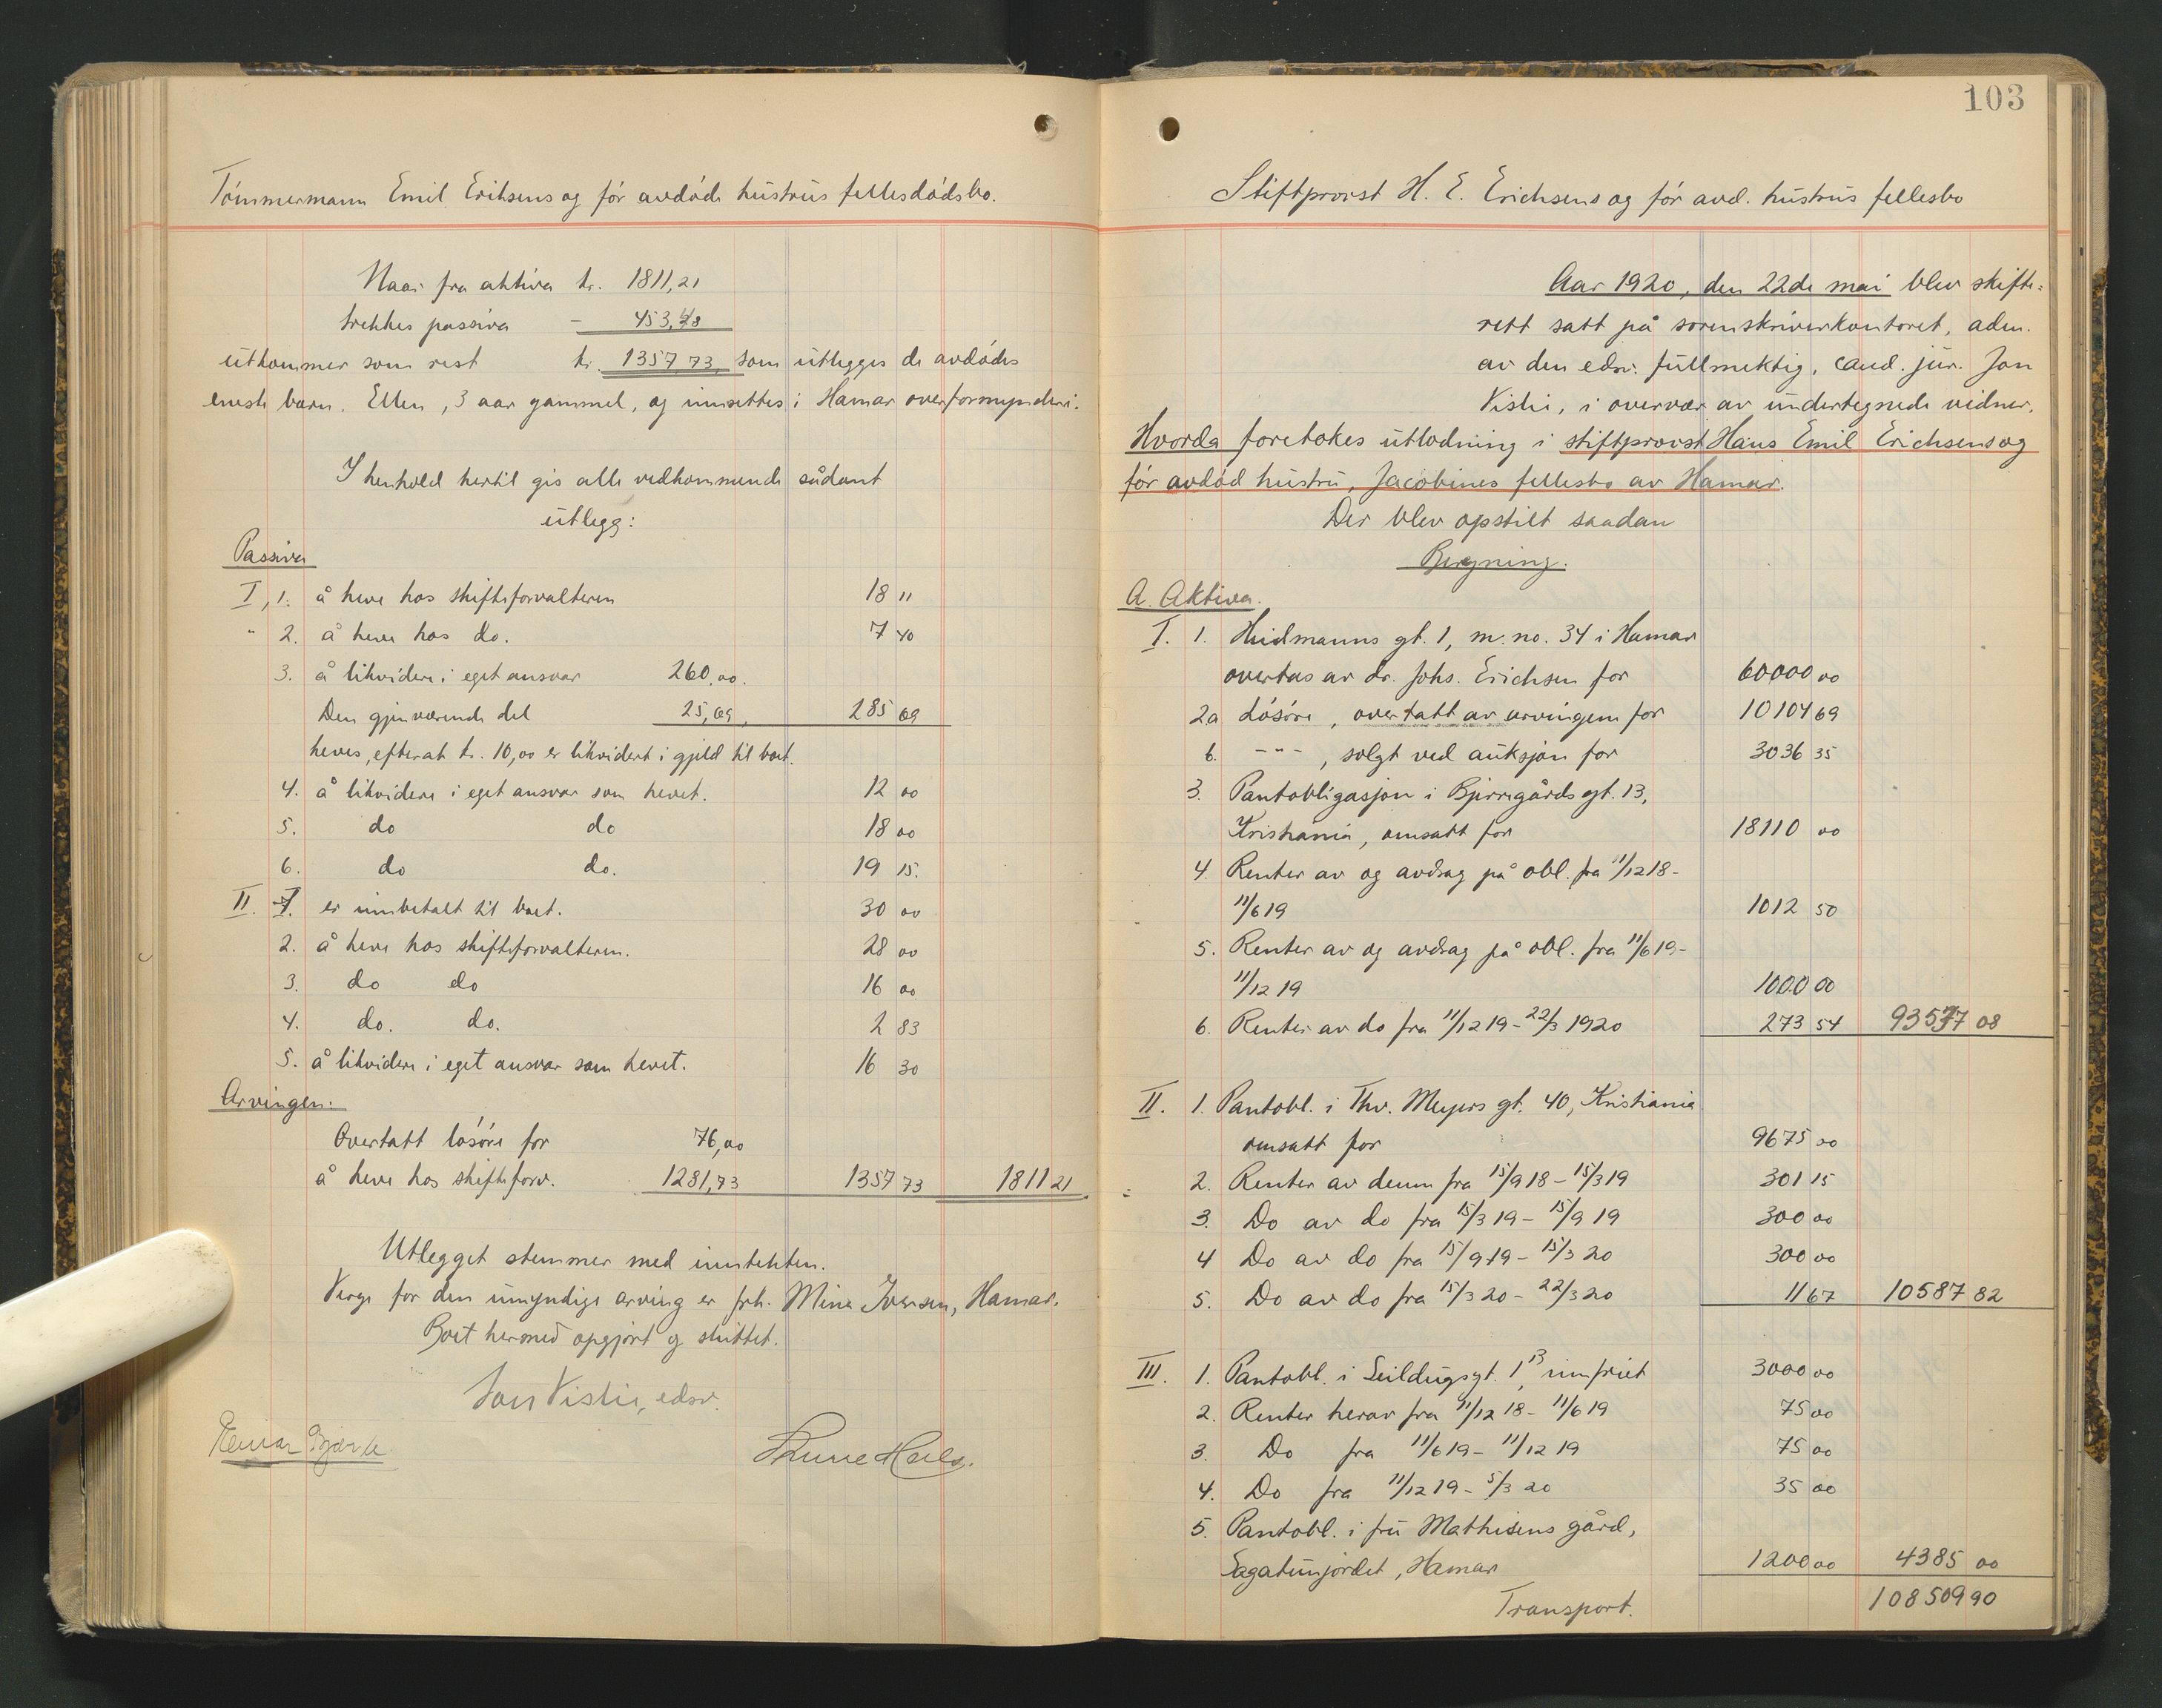 Tömmermann Emil Erichsens og før avdöde hustrus fellesdödsbo.
Naar fra aktiva kr. 1811,21
trekkes passiva - 453,48
utkommer som rest kr. 1357,73 som utlegges de avdödes
eneste barn, Ellen, 3 aar gammel, og innsettes i Hamar overformynderi.
I henhold hertil gis alle vedkommende sådant
utlegg:
Passiva
I, 1. å heve hos skifteforvalteren 18 11
" 2. å heve hos do. 7 40
3. å likvidere i eget ansvar 260,00.
Den gjenværende del 25,69, 285 69
heves, efterat kr. 10,00 er likvidert i gjeld til boet.
4. å likvidere i eget ansvar som hevet. 12 00
5. do do 18 00
6. do do. 19 15.
II. 1. er innbetalt til boet. 30 00
2. å heve hos skifteforvalteren. 28 00
3. do do 16 00
4. do. do. 2 83
5. å likvidere i eget ansvar som hevet. 16 30
Arvingen:
Overtatt lösöre for 76,00
å heve hos skifteforv. 1281,73 1357 73 1811 21
Utlegget stemmer med inntekten.
Verge for den umyndige arving er frk. Mina Iversen, Hamar.
Boet hermed opgjort og sluttet.
Jon Vislie, edsv.
103
Stiftprovst H. E. Erichsens og før avd. hustrus fellesbo
Aar 1920, den 22de mai blev skifte=
rett satt på sorenskriverkontoret, adm.
av den edsv. fullmektig, cand. jur. Jon
Vislie, i overvær av undertegnede vidner.
Hvorda foretokes utlodning i stiftprovst Hans Emil Erichsens og
før avdöd hustru, Jacobines fellesbo av Hamar.
Der blev opstilt saadan
Beregning.
A. Aktiva.
I. 1. Hedmanns gt. 1, m. no. 34 i Hamar
overtas av dr. Johs. Erichsen for 60000 00
2a Lösöre, overtatt av arvingene for 10104 69
b. -"-, solgt ved auksjon for 3036 35
3. Pantobligasjon i Bjerregårds gt. 13,
Kristiania, omsatt for 18110 00
4. Renter av og avdrag på obl. fra 11/12 18-
11/6 19 1012 50
5. Renter av og avdrag på obl. fra 11/6 19-
11/12 19 1000 00
6. Renter av do fra 11/12 19 - 22/3 1920 273 54 93537 08
II. 1. Pantobl. i Thv. Meyers gt. 40, Kristiania
omsatt for 9675 00
2. Renter av denne fra 15/9 18 - 15/3 19 301 15
3. Do av do fra 15/3 19 - 15/9 19 300 00
4 Do av do fra 15/9 19 - 15/3 20 300 00
5. Do av do fra 15/3 20 - 22/3 20 11 67 10587 82
III. 1. Pantobl. i Seildugsgt. 1 B, innfriet 3000 00
2. Renter herav fra 11/12 18 - 11/6 19 75 00
3. Do fra 11/6 19 - 11/12 19 75 00
4. Do fra 11/12 19 - 5/3 20 35 00
5. Pantobl. i fru Mathisens gård,
Sagatunjordet, Hamar 1200 00 4385 00
Transport. 108509 90